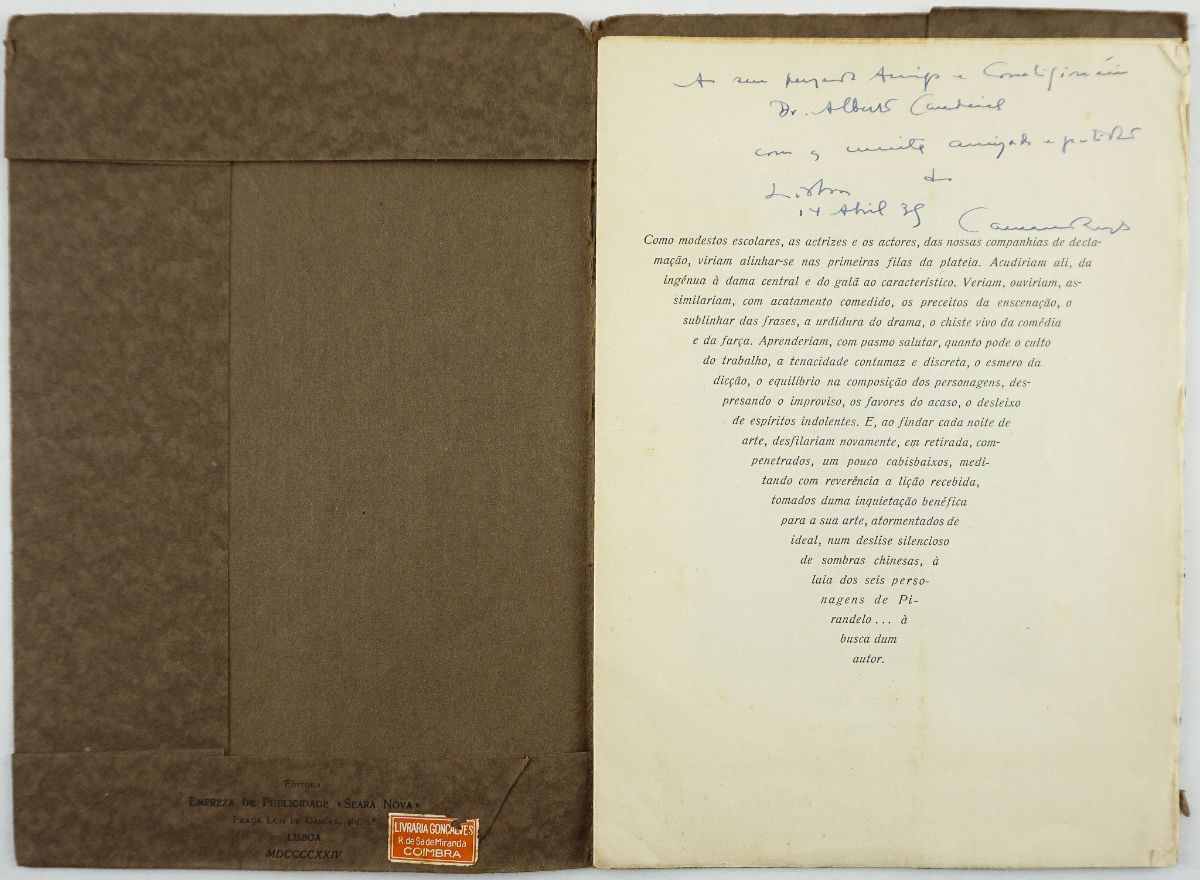 Editora
Empreza de Publicidade «Seara Nova»
Praça Luis de Camões, 46, 2.º
LISBOA
MDCCCCXXIV
LIVRARIA GONÇALVES
R. de Sá de Miranda
COIMBRA
Ao seu Amigo e
Dr. Alberto
com a muita amizade e
Lisboa
14 Abril 39
Como modestos escolares, as actrizes e os actores, das nossas companhias de decla-
mação, viriam alinhar-se nas primeiras filas da plateia. Acudiriam ali, da
ingénua à dama central e do galã ao característico. Veriam, ouviriam, as-
similariam, com acatamento comedido, os preceitos da enscenação, o
sublinhar das frases, a urdidura do drama, o chiste vivo da comédia
e da farça. Aprenderiam, com pasmo salutar, quanto pode o culto
do trabalho, a tenacidade contumaz e discreta, o esmero da
dicção, o equilíbrio na composição dos personagens, des-
presando o improviso, os favores do acaso, o desleixo
de espíritos indolentes. E, ao findar cada noite de
arte, desfilariam novamente, em retirada, com-
penetrados, um pouco cabisbaixos, medi-
tando com reverência a lição recebida,
tomados duma inquietação benéfica
para a sua arte, atormentados de
ideal, num deslise silencioso
de sombras chinesas, à
laia dos seis perso-
nagens de Pi-
randelo... à
busca dum
autor.